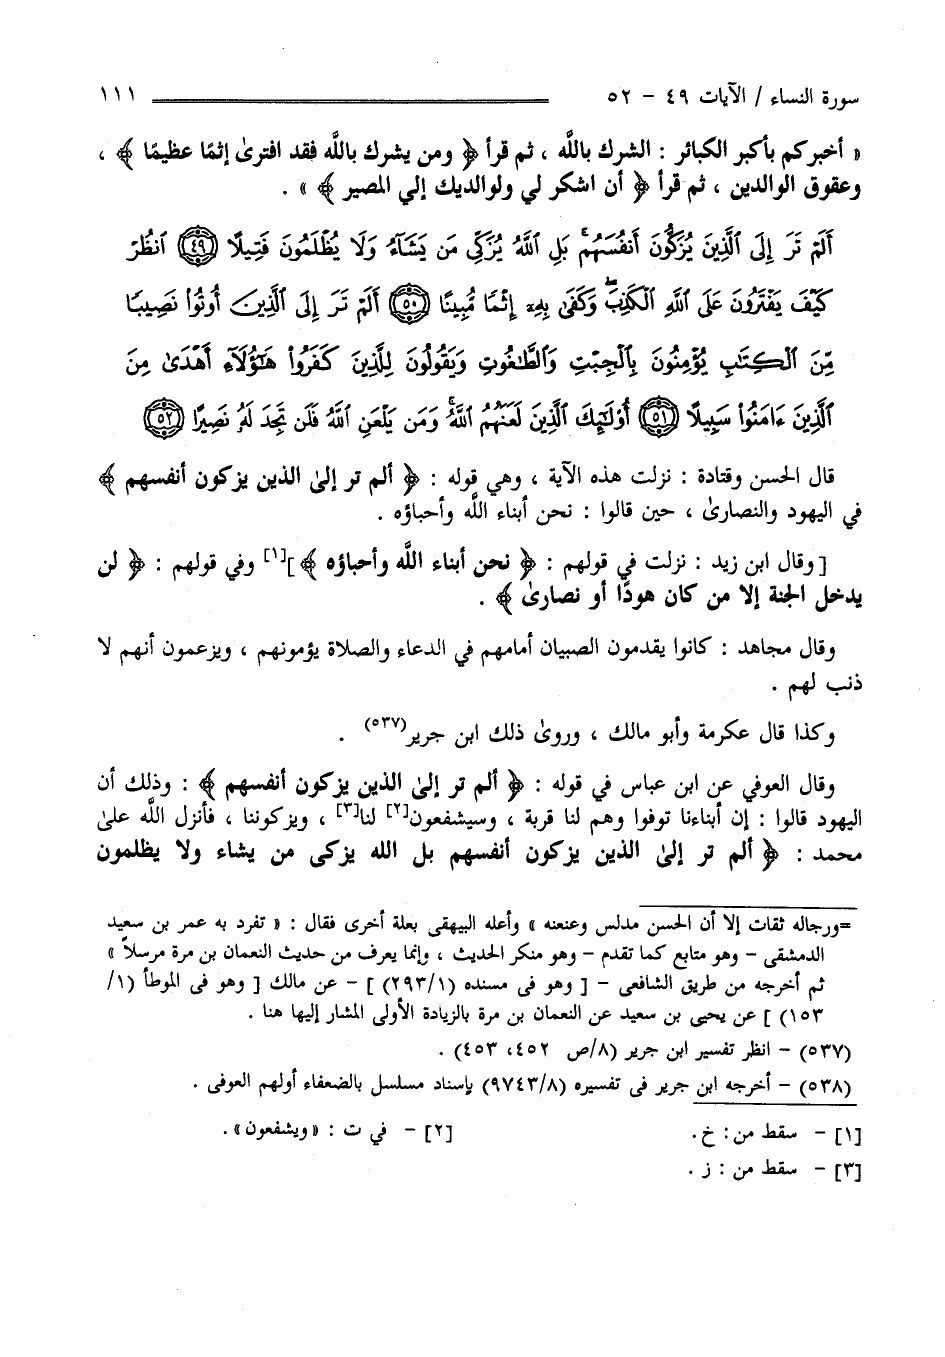 سورة النساء / الآيات ٤٩ - ٥٢ ١١١
« أخبركم بأكبر الكبائر : الشرك باللَّه ، ثم قرأ ﴿ ومن يشرك باللَّه فقد افترىٰ إثمًا عظيمًا ﴾ ،
وعقوق الوالدين ، ثم قرأ ﴿ أن اشكر لي ولوالديك إلي المصير ﴾ » .
أَلَمْ تَرَ إِلَى ٱلَّذِينَ يُزَكُّونَ أَنفُسَهُمۚ بَلِ ٱللَّهُ يُزَكِّى مَن يَشَآءُ وَلَا يُظْلَمُونَ فَتِيلًا ﴿٤٩﴾ ٱنظُرْ
كَيْفَ يَفْتَرُونَ عَلَى ٱللَّهِ ٱلْكَذِبَۖ وَكَفَىٰ بِهِۦٓ إِثْمًا مُّبِينًا ﴿٥٠﴾ أَلَمْ تَرَ إِلَى ٱلَّذِينَ أُوتُوا۟ نَصِيبًا
مِّنَ ٱلْكِتَٰبِ يُؤْمِنُونَ بِٱلْجِبْتِ وَٱلطَّٰغُوتِ وَيَقُولُونَ لِلَّذِينَ كَفَرُوا۟ هَٰٓؤُلَآءِ أَهْدَىٰ مِنَ
ٱلَّذِينَ ءَامَنُوا۟ سَبِيلًا ﴿٥١﴾ أُو۟لَٰٓئِكَ ٱلَّذِينَ لَعَنَهُمُ ٱللَّهُۖ وَمَن يَلْعَنِ ٱللَّهُ فَلَن تَجِدَ لَهُۥ نَصِيرًا ﴿٥٢﴾
قال الحسن وقتادة : نزلت هذه الآية ، وهي قوله : ﴿ ألم تر إلىٰ الذين يزكون أنفسهم ﴾
في اليهود والنصارىٰ ، حين قالوا : نحن أبناء اللَّه وأحباؤه .
[ وقال ابن زيد : نزلت في قولهم : ﴿ نحن أبناء اللَّه وأحباؤه ﴾ ][١] وفي قولهم : ﴿ لن
يدخل الجنة إلا من كان هودًا أو نصارىٰ ﴾ .
وقال مجاهد : كانوا يقدمون الصبيان أمامهم في الدعاء والصلاة يؤمونهم ، ويزعمون أنهم لا
ذنب لهم .
وكذا قال عكرمة وأبو مالك ، وروىٰ ذلك ابن جرير(٥٣٧) .
وقال العوفي عن ابن عباس في قوله : ﴿ ألم تر إلىٰ الذين يزكون أنفسهم ﴾ : وذلك أن
اليهود قالوا : إن أبناءنا توفوا وهم لنا قربة ، وسيشفعون[٢] لنا[٣] ، ويزكوننا ، فأنزل اللَّه علىٰ
محمد : ﴿ ألم تر إلىٰ الذين يزكون أنفسهم بل الله يزكى من يشاء ولا يظلمون
=ورجاله ثقات إلا أن الحسن مدلس وعنعنه » وأعله البيهقى بعلة أخرى فقال : « تفرد به عمر بن سعيد
الدمشقى - وهو متابع كما تقدم - وهو منكر الحديث ، وإنما يعرف من حديث النعمان بن مرة مرسلاً »
ثم أخرجه من طريق الشافعى - [ وهو فى مسنده (٢٩٣/١) ] - عن مالك [ وهو فى الموطأ (١/
١٥٣) ] عن يحيى بن سعيد عن النعمان بن مرة بالزيادة الأولى المشار إليها هنا .
(٥٣٧) - انظر تفسير ابن جرير (٨/ص ٤٥٢، ٤٥٣) .
(٥٣٨) - أخرجه ابن جرير فى تفسيره (٩٧٤٣/٨) بإسناد مسلسل بالضعفاء أولهم العوفى .
[١] - سقط من: خ. [٢] - في ت : «ويشفعون» .
[٣] - سقط من : ز .